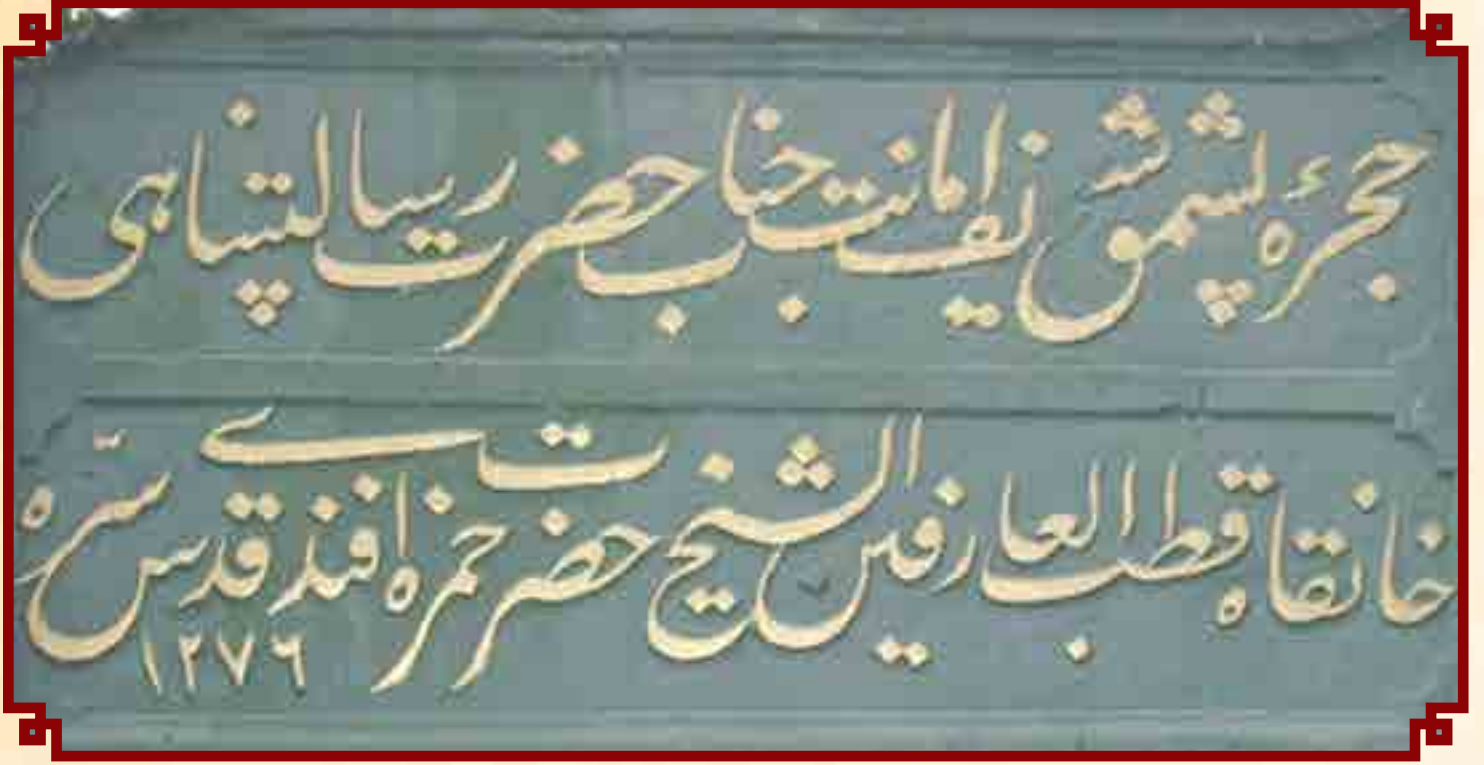 حجرهٔ پشمق شریف امانت جناب حضرت رسالتپناهی
خانقاه قطب العارفین الشیخ حضرت حمزه افندی قدس سرّه
١٢٧٦